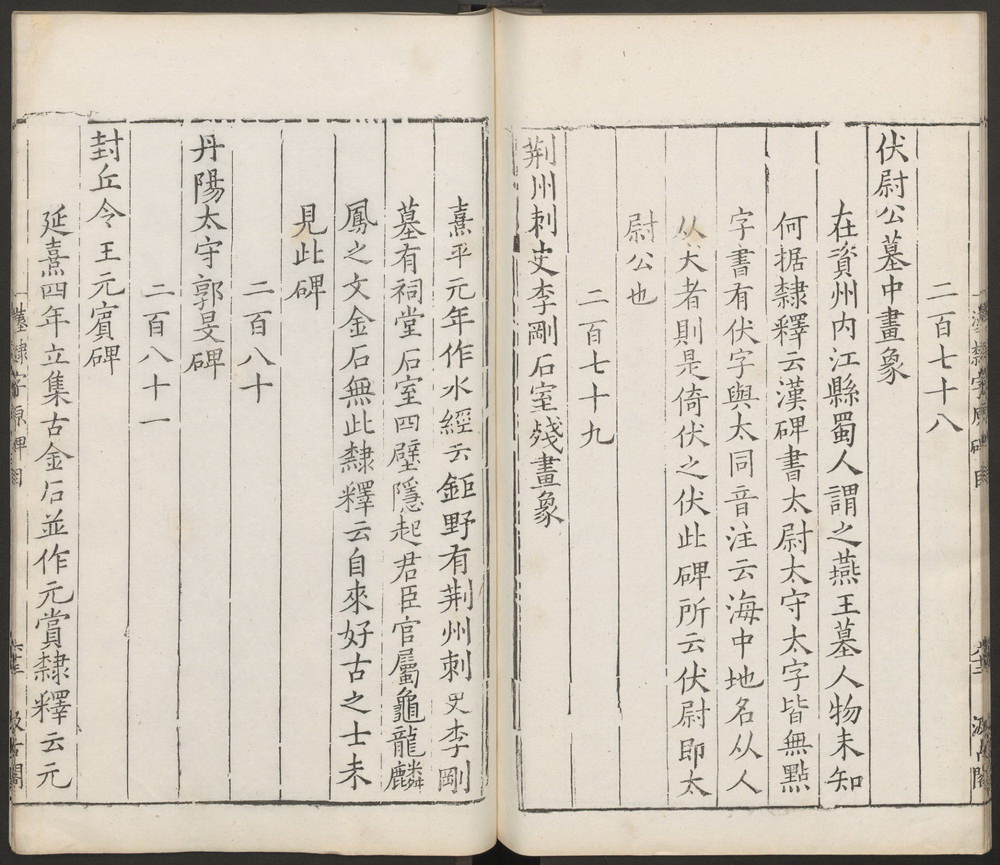 二百七十八
伏尉公墓中畫象
在資州内江縣蜀人謂之燕王墓人物未知
何据隸釋云漢碑書太尉太守太字皆無點
字書有伏字與太同音注云海中地名从人
从犬者則是倚伏之伏此碑所云伏尉即太
尉公也
二百七十九
荆州刺史李剛石室殘畫象
熹平元年作水經云鉅野有荆州刺史李剛
墓有祠堂石室四壁隱起君臣官屬龜龍麟
鳳之文金石無此隸釋云自來好古之士未
見此碑
二百八十
丹陽太守郭旻碑
二百八十一
封丘令王元賔碑
延熹四年立集古金石並作元賞隸釋云元